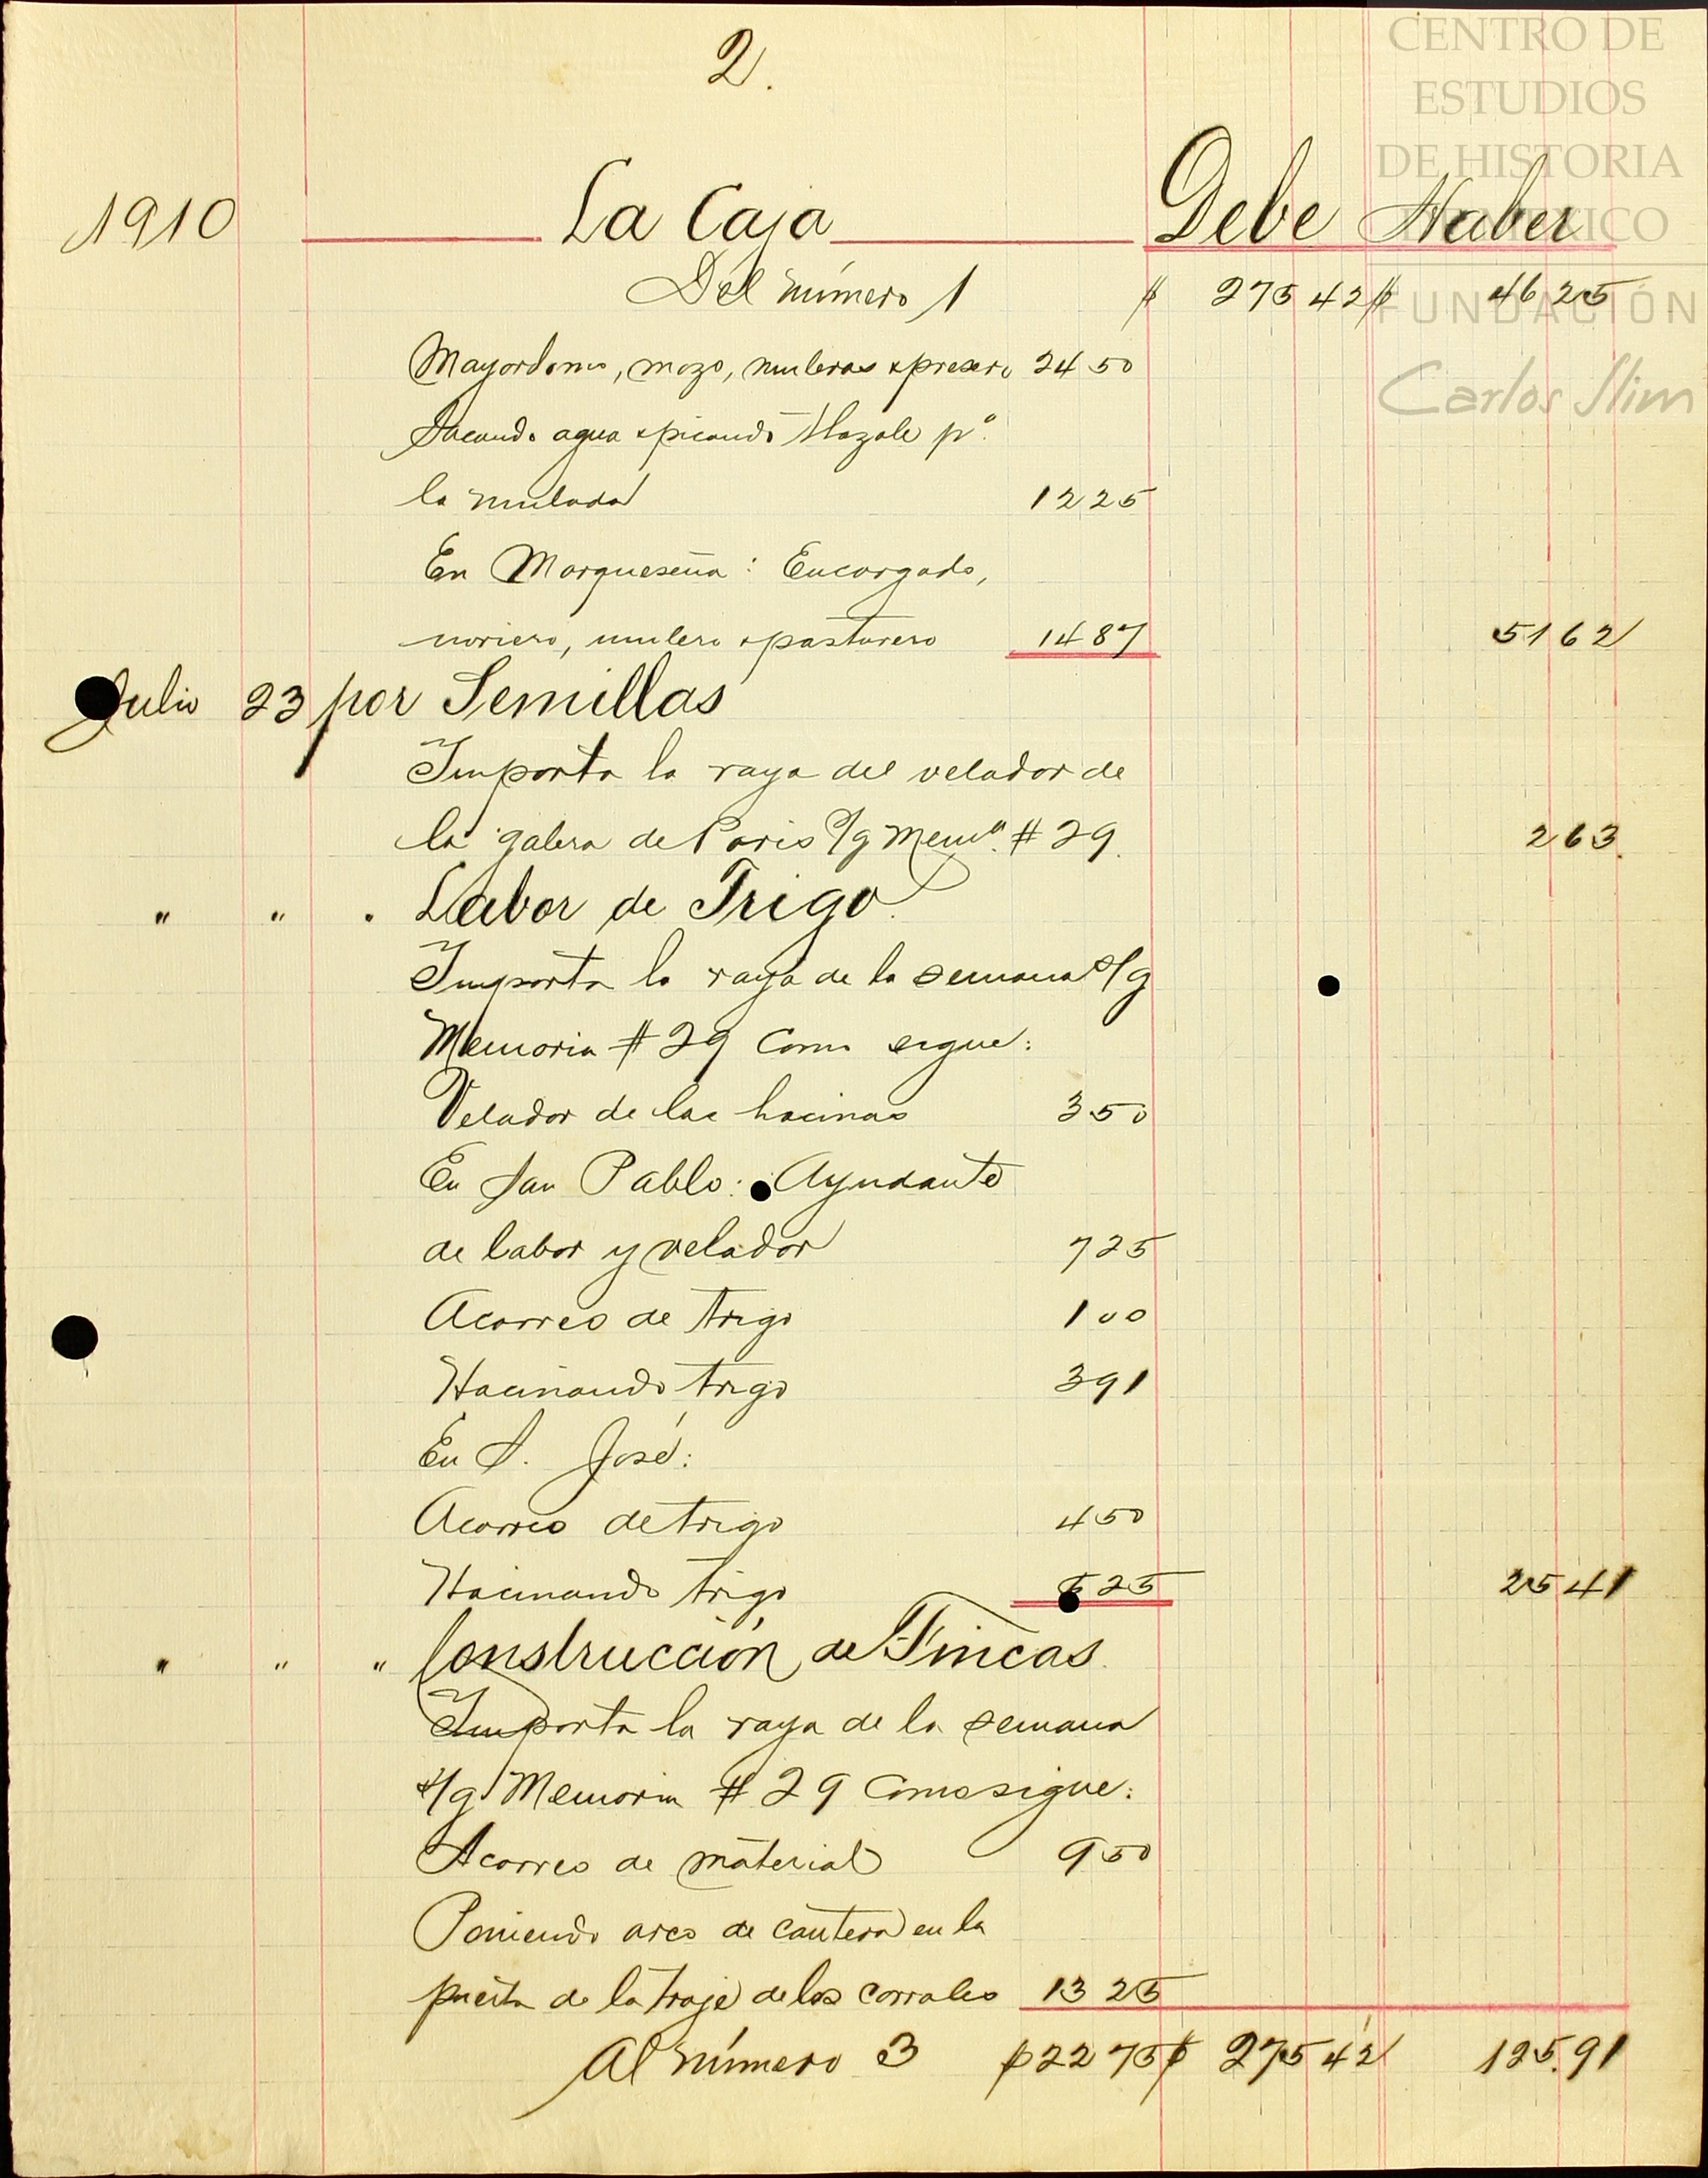 2.
CENTRO DE
ESTUDIOS
DE HISTORIA
DE MÉXICO
FUNDACIÓN
Carlos Slim
1910 La Caja Debe Haber
Del número 1 $ 275 42 $ 46 25
Mayordomo, mozo, muleros & presero 24 50
Sacando agua & picando tlazole pª.
la mulada 12 25
En Marqueseña: Encargado,
noriero, mulero & pasturero 14 87 51 62
Julio 23 por Semillas
Importa la raya del velador de
la galera de Paris s/g Memª. # 29. 2 63.
" " . Labor de Trigo.
Importa la raya de la semana s/g
Memoria # 29 como sigue:
Velador de las hacinas 3 50
En San Pablo: Ayudante
de labor y velador 7 25
Acarreo de trigo 1 00
Hacinando trigo 3 91
En S. José:
Acarreo de trigo 4 50
Hacinando trigo 5 25 25 41
" " " Construcción de Fincas.
Importa la raya de la semana
s/g Memoria # 29 como sigue:
Acarreo de material 9 50
Poniendo arco de cantera en la
puerta de la troje de los corrales 13 25
Al número 3 $ 22 75 $ 275 42 125.91